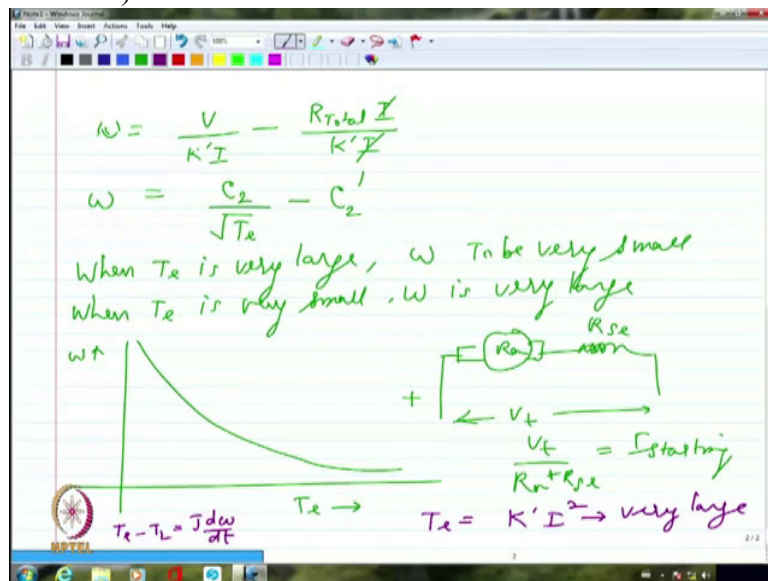 Note1 - Windows Journal
File Edit View Insert Actions Tools Help
100%
B I
ω = V / K'I - R_Total I / K'I
ω = C₂ / √Te - C₂'
When Te is very large, ω To be very small
When Te is very small, ω is very large
Rse
Ra
ω↑
+ ← Vt →
Vt / Ra + Rse = Istarting
Te →
Te = K'I² → very large
Te - TL = J dω/dt
NPTEL
2/2